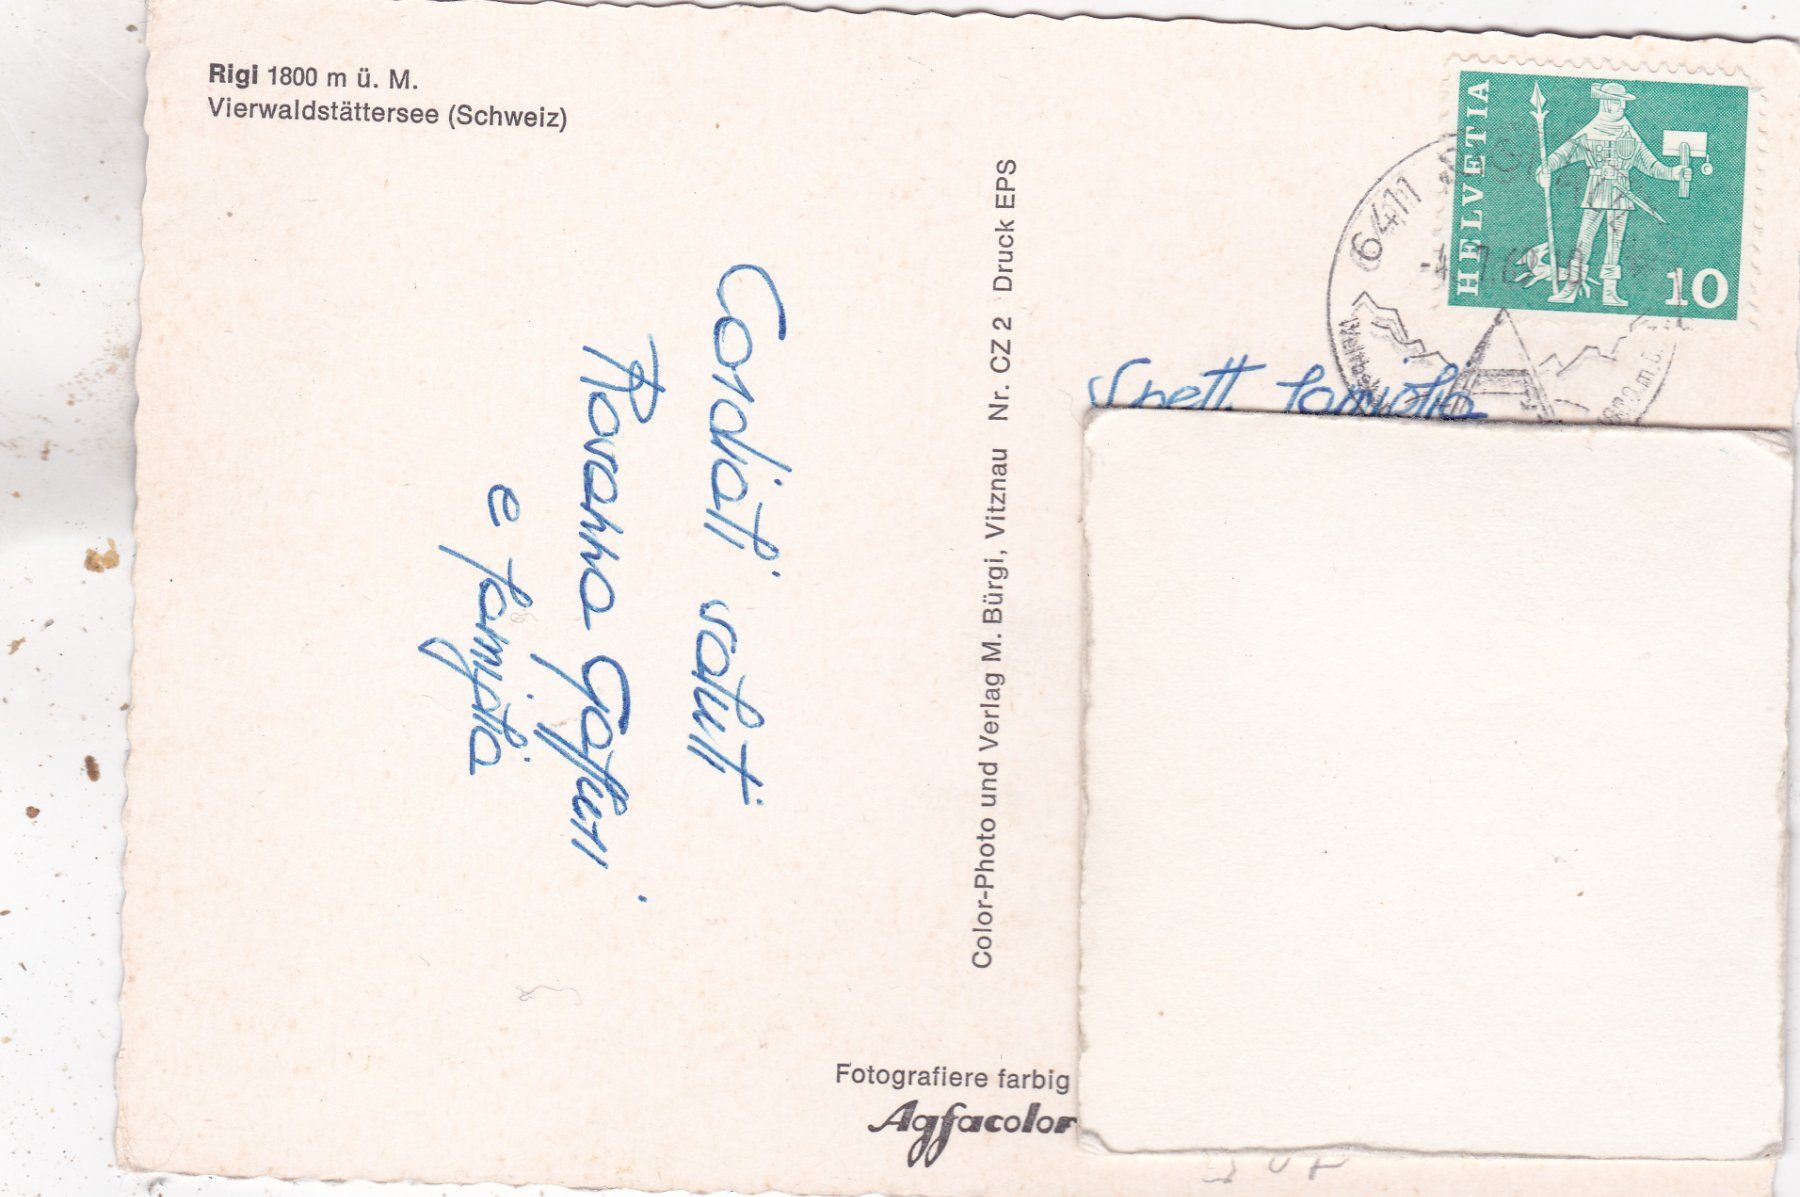 Rigi 1800 m ü. M.
Vierwaldstättersee (Schweiz)
Cordiali saluti
e famiglia
Color-Photo und Verlag M. Bürgi, Vitznau Nr. CZ 2 Druck EPS
Fotografiere farbig
Agfacolor
HELVETIA
10
6411
Spett. famiglia